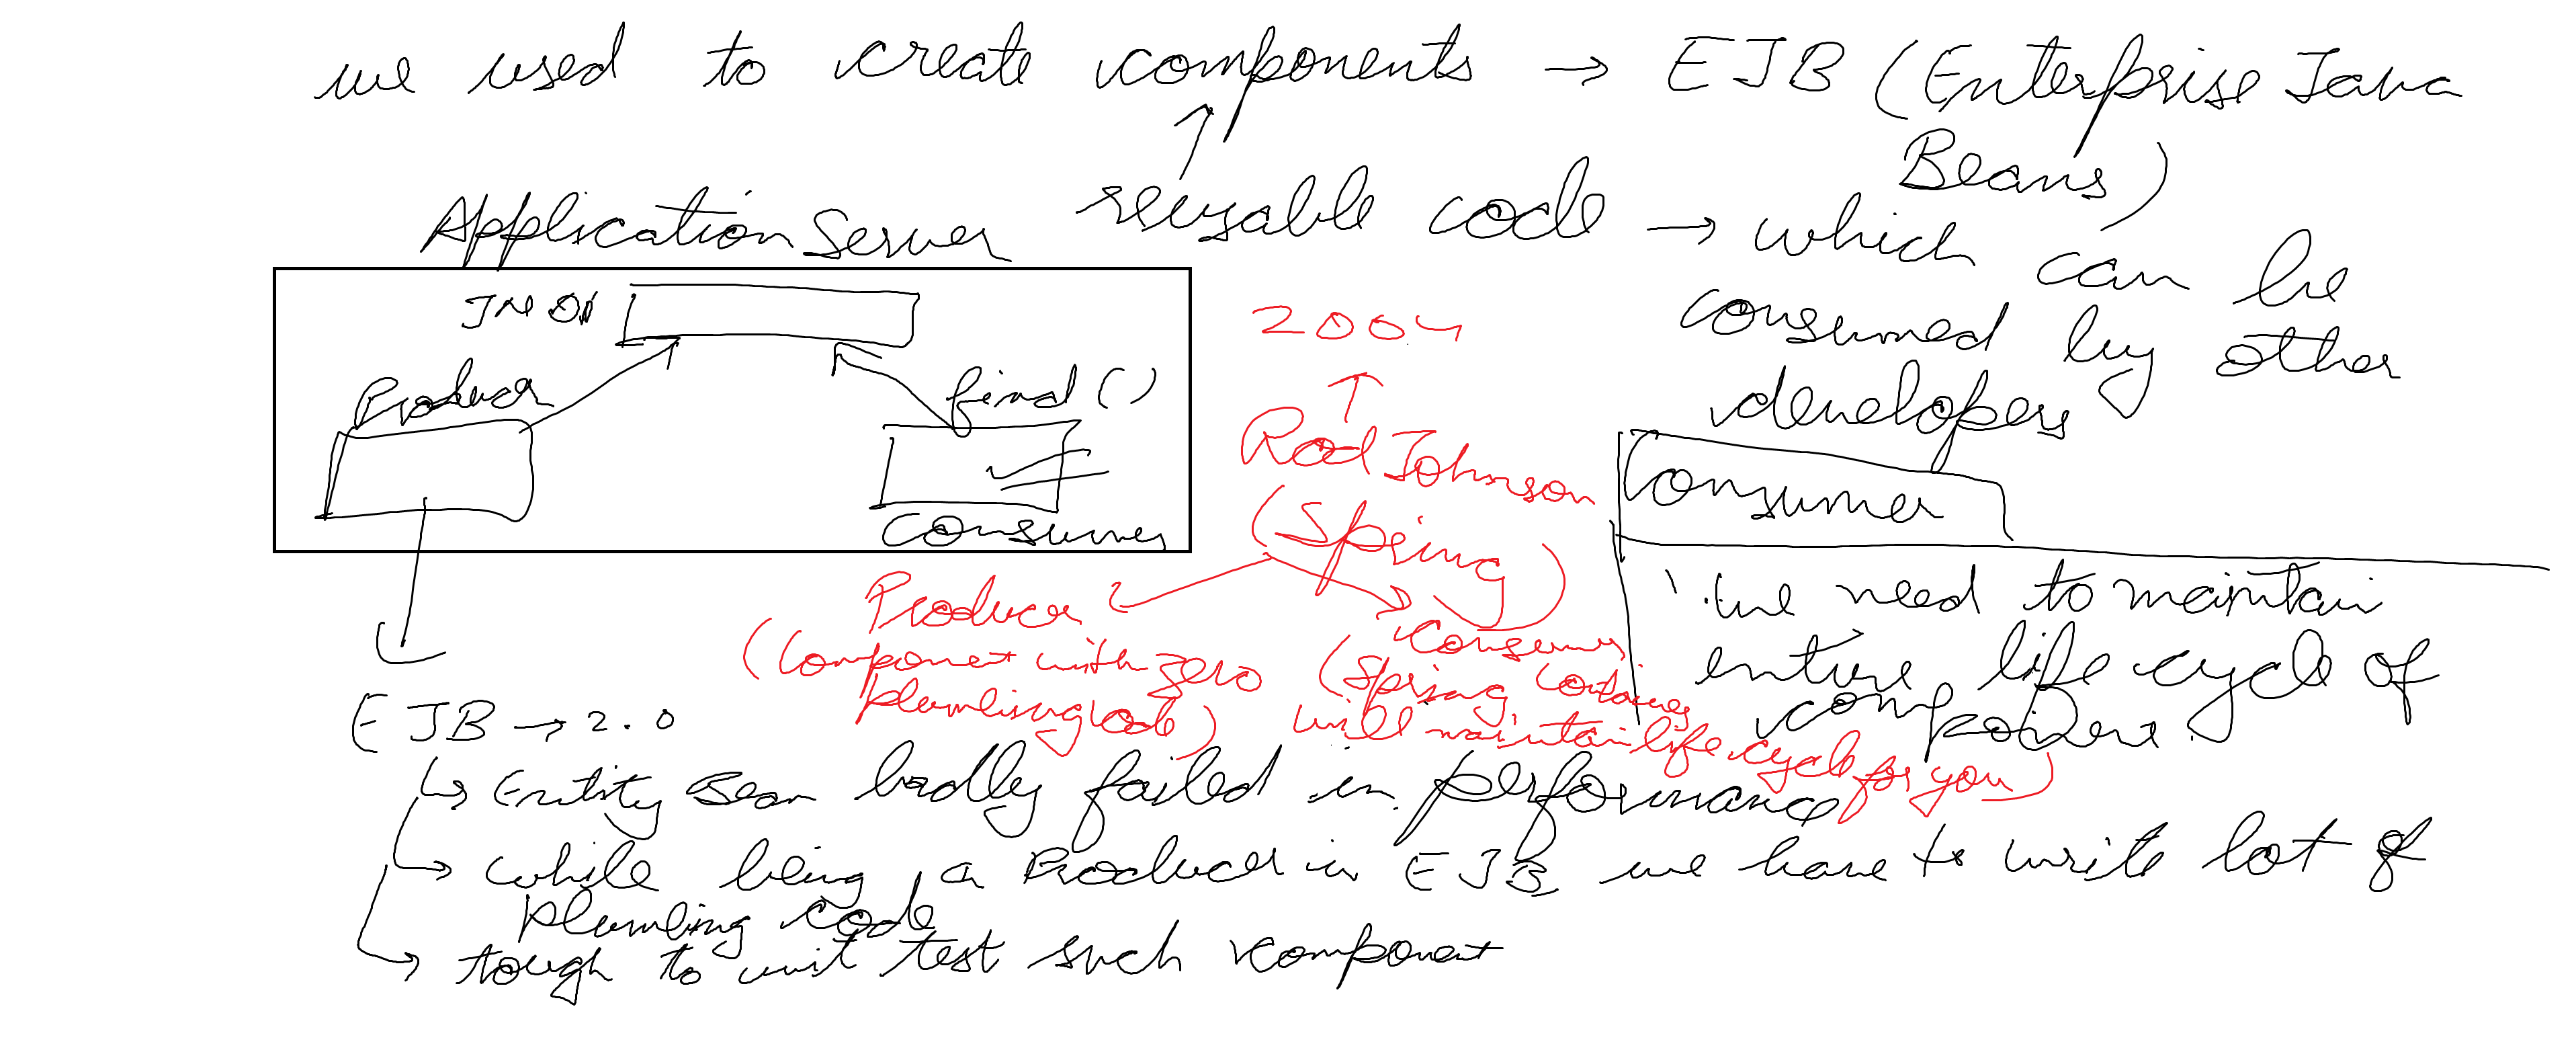 we used to create components → EJB (Enterprise Java
Beans)
reusable code → which can be
consumed by other
developers
Application Server
JNDI
Producer
find()
Consumer
2004
Rod Johnson
(Spring)
Producer
(Component with zero
plumbing code)
Consumer
(Spring Container
will maintain life cycle for you)
Consumer
we need to maintain
entire life cycle of
component.
EJB → 2.0
Entity Bean badly failed in performance
while being a Producer in EJB we have to write lot of
plumbing code
tough to unit test such component